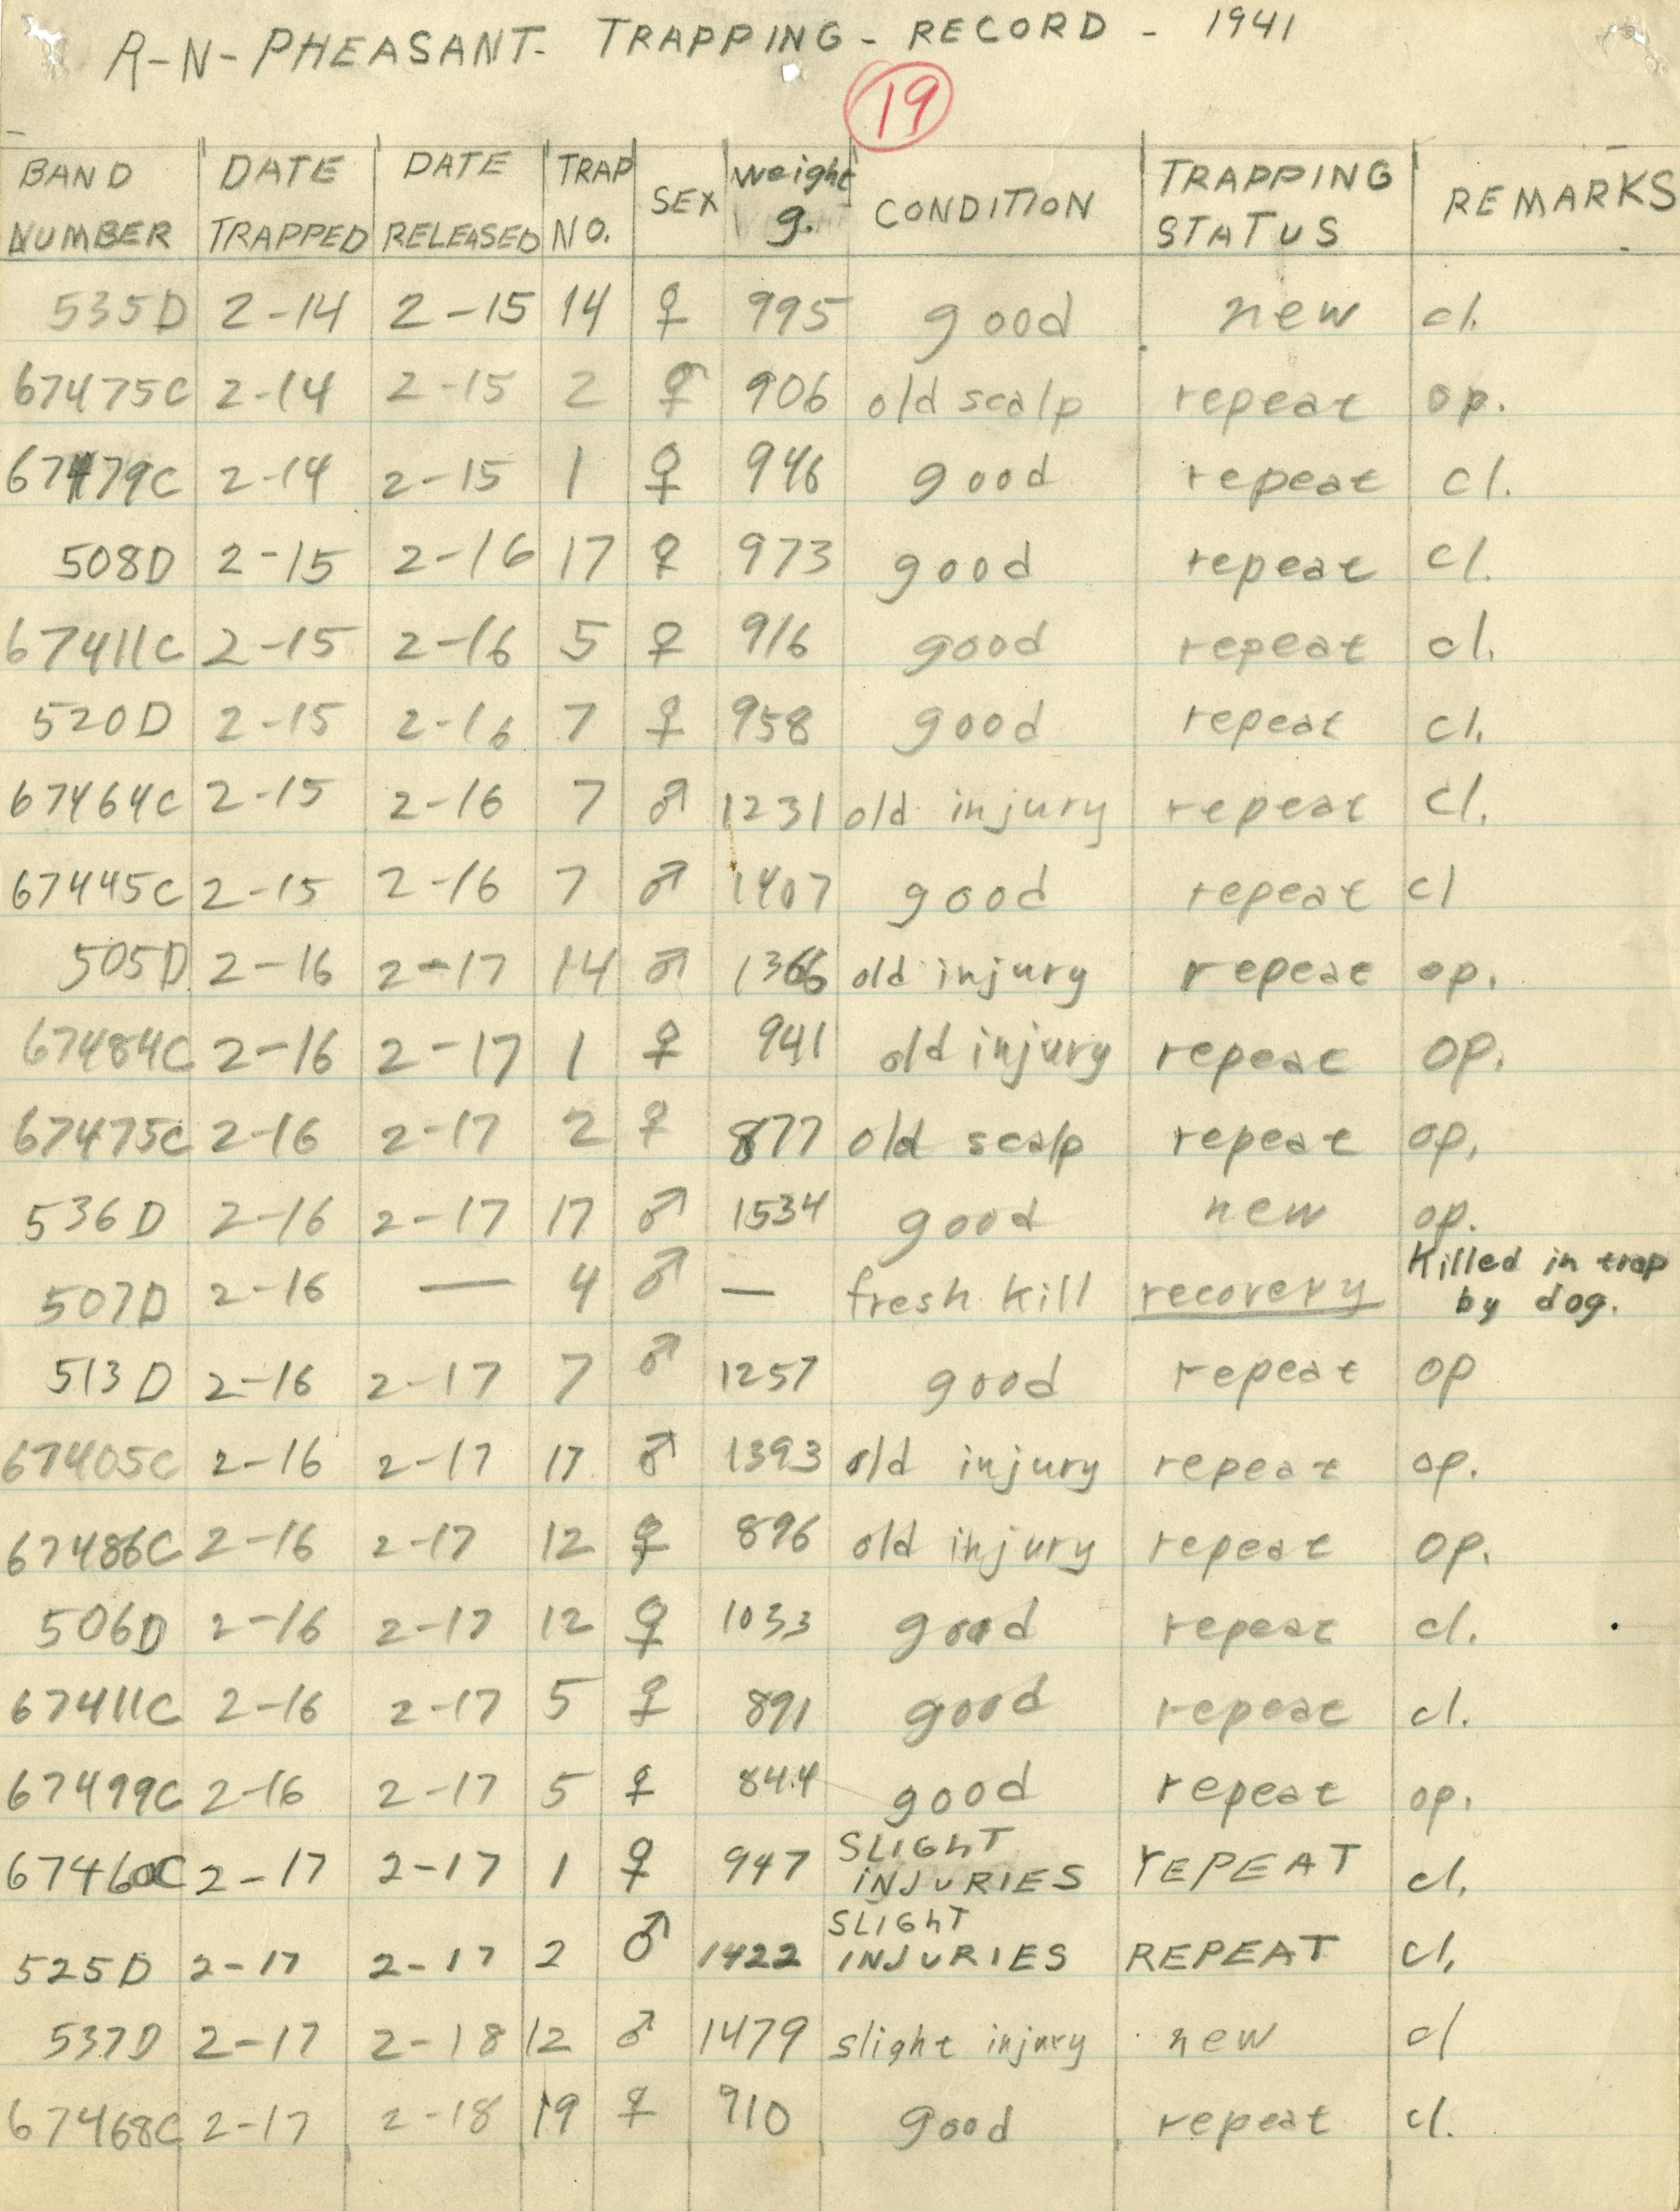 R-N-PHEASANT- TRAPPING - RECORD - 1941
19
BAND NUMBER DATE TRAPPED DATE RELEASED TRAP NO. SEX weight g. CONDITION TRAPPING STATUS REMARKS
535D 2-14 2-15 14 ♀ 995 good new cl.
67475C 2-14 2-15 2 ♀ 906 old scalp repeat op.
67479C 2-14 2-15 1 ♀ 946 good repeat cl.
508D 2-15 2-16 17 ♀ 973 good repeat cl.
67411C 2-15 2-16 5 ♀ 916 good repeat cl.
520D 2-15 2-16 7 ♀ 958 good repeat cl.
67464C 2-15 2-16 7 ♂ 1231 old injury repeat cl.
67445C 2-15 2-16 7 ♂ 1407 good repeat cl
505D 2-16 2-17 14 ♂ 1366 old injury repeat op.
67484C 2-16 2-17 1 ♀ 941 old injury repeat op.
67475C 2-16 2-17 2 ♀ 877 old scalp repeat op.
536D 2-16 2-17 17 ♂ 1534 good new op.
507D 2-16 — 4 ♂ — fresh kill recovery Killed in trap by dog.
513D 2-16 2-17 7 ♂ 1257 good repeat op
67405C 2-16 2-17 17 ♂ 1393 old injury repeat op.
67486C 2-16 2-17 12 ♀ 896 old injury repeat op.
506D 2-16 2-17 12 ♀ 1033 good repeat cl.
67411C 2-16 2-17 5 ♀ 891 good repeat cl.
67499C 2-16 2-17 5 ♀ 844 good repeat op.
67460C 2-17 2-17 1 ♀ 947 SLIGHT INJURIES REPEAT cl.
525D 2-17 2-17 2 ♂ 1422 SLIGHT INJURIES REPEAT cl.
537D 2-17 2-18 12 ♂ 1479 slight injury new cl
67468C 2-17 2-18 19 ♀ 910 good repeat cl.